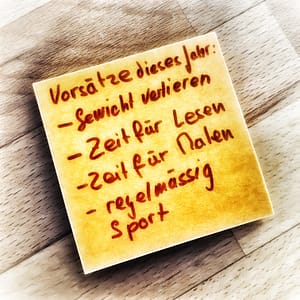 Vorsätze dieses Jahr:
- Gewicht verlieren
- Zeit für Lesen
- Zeit für Malen
- regelmässig
Sport